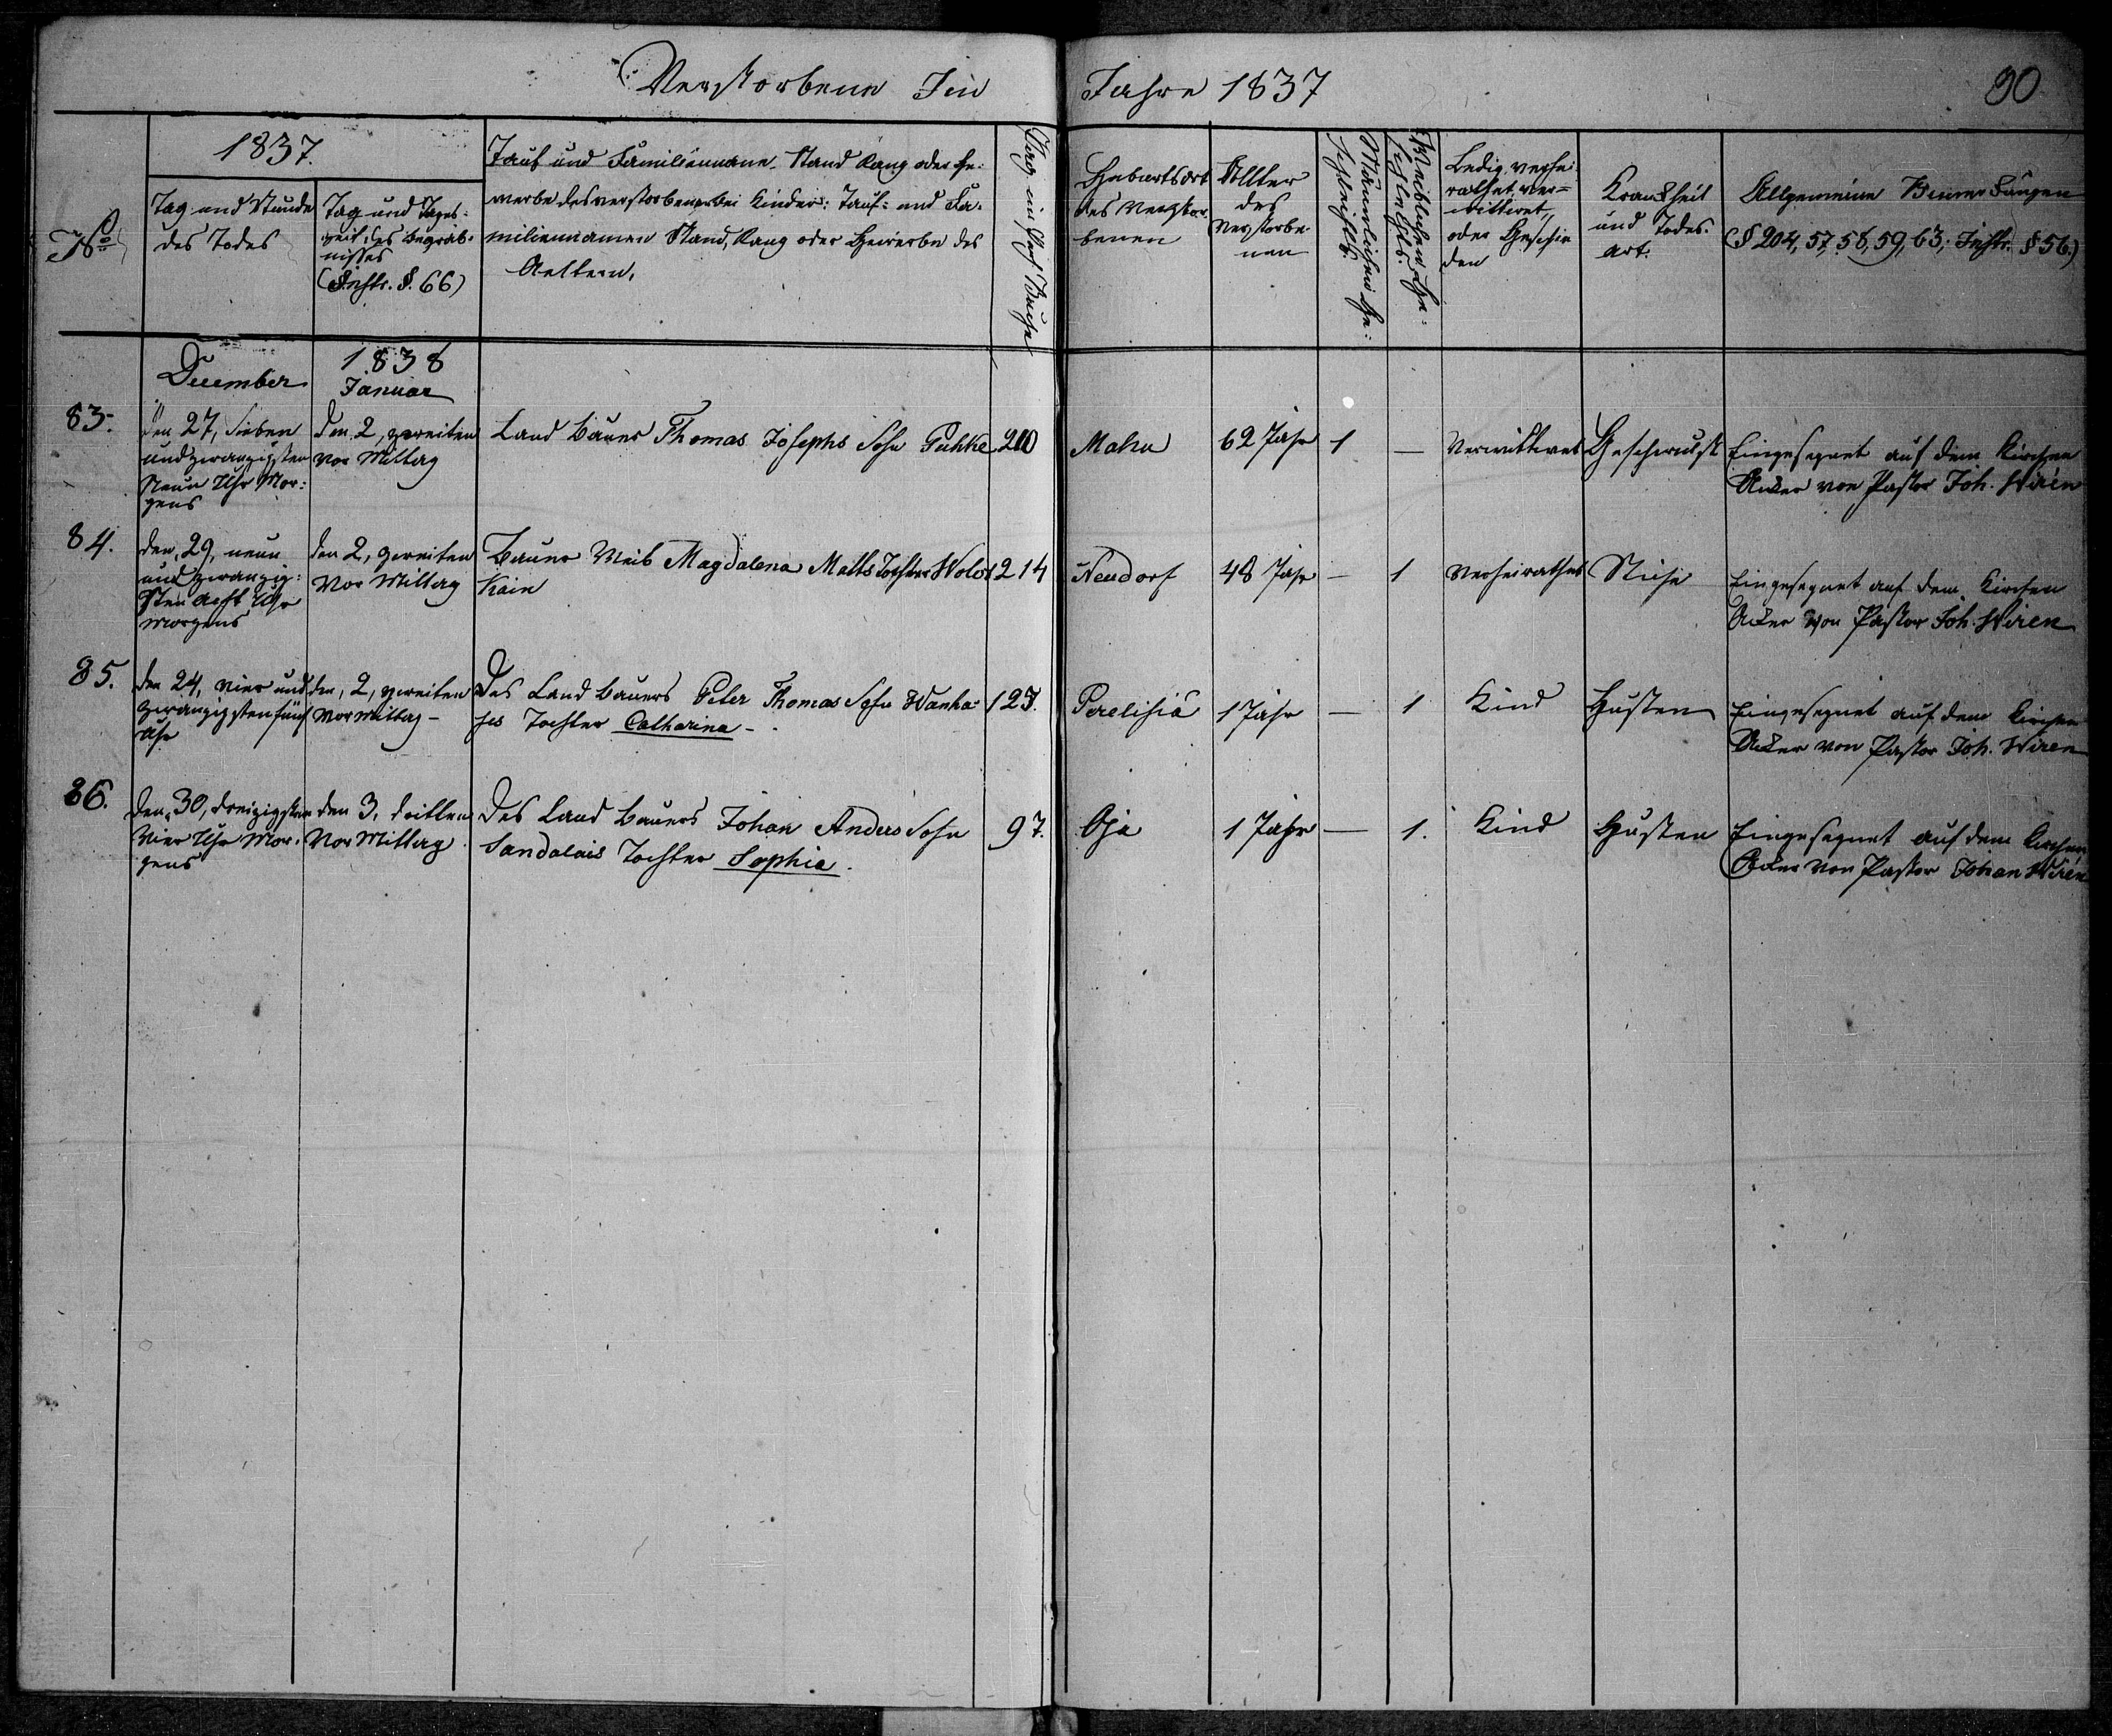 Verstorbene Im Jahre 1837
90
No
1837.
Tag und Stunde
des Todes
Tag und Tages-
zeit des Begräb-
nisses
(Instr. §. 66)
Tauf und Familienname Stand Rang oder Ge-
werbe des verstorbenen bei Kinder: Tauf- und Fa-
miliennamen Stand, Rang oder Gewerbe des
Aeltern.
Pag im Buche
Geburtsort
des Verstor-
benen
Allter
des
Verstorbe-
nen
Männlichen Ge-
schlechts.
Weiblichen Ge-
schlechts.
Ledig, verhei
rathet, ver-
wittwet,
oder Geschie
den
Krankheit
und Todes-
art.
Allgemeine Bemerkungen
(§ 204, 57, 58, 59, 63; Instr. § 56.)
December
1838
Januar
83.
den 27, sieben
und zwanzigsten
Neun Uhr Mor-
gens
den 2, zweiten
vor Mittag
Land Bauer Thomas Josephs Sohn Puhke
210
Mahu
62 Jahr
1
—
Verwittwet
Geschwulst
Eingesegnet auf dem Kirchen
Acker von Pastor Joh. Wirén
84.
den, 29, neun
und zwanzig-
sten Acht Uhr
Morgens
den 2, zweiten
Vor Mittag
Bauer Weib Magdalena Matts Tochter Wolos
Kain
214
Neudorf
48 Jahr
—
1
Verheirathet
Stiche
Eingesegnet auf dem Kirchen
Acker von Pastor Joh. Wiren
85.
den 24, vier und
zwanzigsten fünf
Uhr
den, 2, zweiten
Vormittag -
Des Land Bauers Peter Thomas Sohn Wanha-
hes Tochter Catharina -
123.
Perelisiä
1 Jahr
—
1
Kind
Husten
Eingesegnet auf dem Kirchen
Acker von Pastor Joh. Wiren
86.
Den, 30, dreizigsten
Vier Uhr Mor-
gens
den 3, dritten
Vor Mittag
Des Land Bauers Johan Anders Sohn
Sandalais Tochter Sophia.
97.
Oja
1 Jahr
—
1.
Kind
Husten
Eingesegnet auf dem Kirchen
Acker von Pastor Johan Wirén